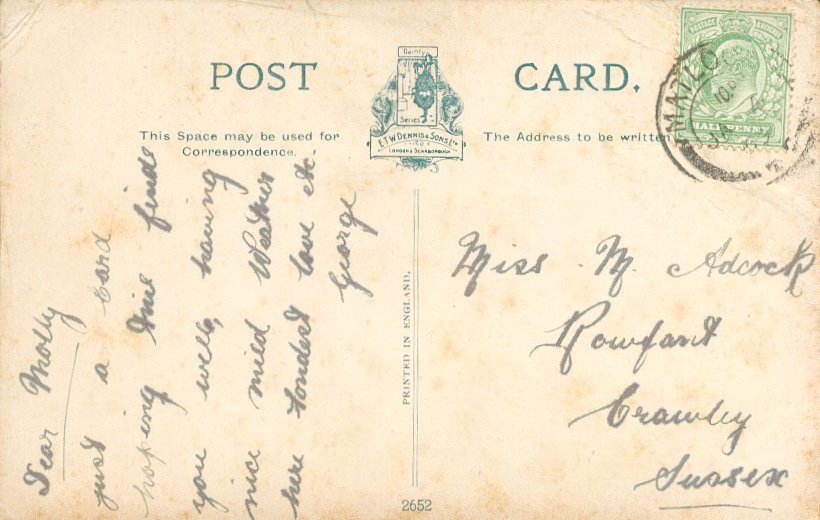 POST CARD.
Dainty
Series
E.T.W. DENNIS & SONS Ltd
LONDON & SCARBOROUGH
This Space may be used for
Correspondence.
The Address to be written
MATLO
HALFPENNY
Dear Molly
just a Card
hoping fine finds
you well, having
nice mild Weather
here Fondest love etc.
George
PRINTED IN ENGLAND.
Miss M. Adcock
Rowfant
Crawley
Sussex
2652